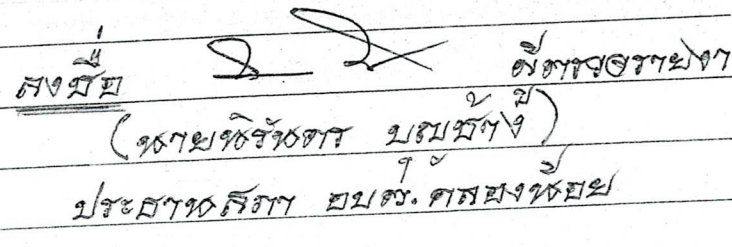 ลงชื่อ ผู้ตรวจรายงา
(นายนิรันดร บุญช้าง)
ประธานสภา อบต.คลองน้อย